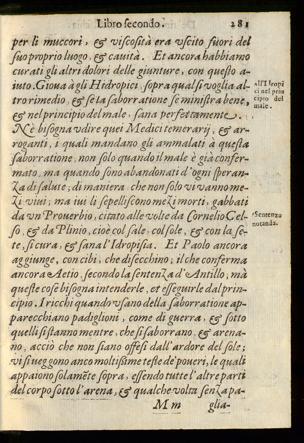 Libro secondo. 281
per li muccori, & viscosità era vscito fuori del
suo proprio luogo, & cauità. Et ancora habbiamo
curati gli altri dolori delle giunture, con questo a-
iuto. Gioua à gli Hidropici, sopra qual si voglia al-
tro rimedio, & se la saborratione se ministra bene,
& nel principio del male, sana perfettamente.
Nè bisogna vdire quei Medici temerarij, & ar-
roganti, i quali mandano gli ammalati a questa
saborratione, non solo quando il male è già confer-
mato, ma quando sono abandonati d'ogni speran-
za di salute; di maniera che non solo vi vanno me-
zi viui; ma iui li sepelliscono mezi morti, gabbati
da vn Prouerbio, citato alle volte da Cornelio Cel-
so, & da Plinio, cioè col sale: col sole, & con la se-
te, si cura, & sana l'Idropisia. Et Paolo ancora
aggiunge, con cibi, che disecchino; il che conferma
ancora Aetio, secondo la sentenza d'Antillo; mà
queste cose bisogna intenderle, et esseguirle dal prin-
cipio. I ricchi quando vsano della saborratione ap-
parecchiano padiglioni, come di guerra, & sotto
quelli si stanno mentre, che si saborrano, & arena-
no, acciò che non siano offesi dall'ardore del sole;
vi si veggono anco moltissime teste de' poueri, le quali
appaiono solamẽte sopra, essendo tutte l'altre parti
del corpo sotto l'arena, & qualche volta senza pa-
M m glia-
All'Idropi
ci nel prin
cipio del
male.
Sentenza
notanda.